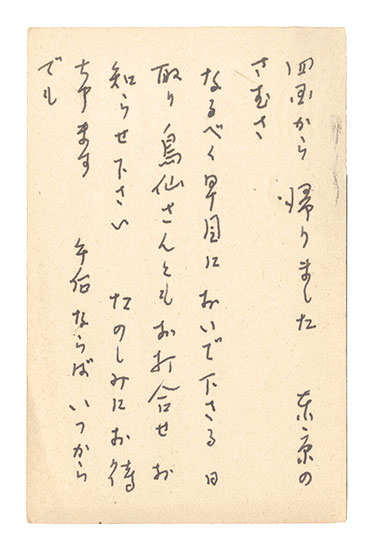 四国から 帰りました 東京の
さむさ
なるべく早目に おいで下さる 日
取り 鳥仙さんとも お打合せ お
知らせ下さい たのしみにお待
ち申ます 午后ならば いつから
でも